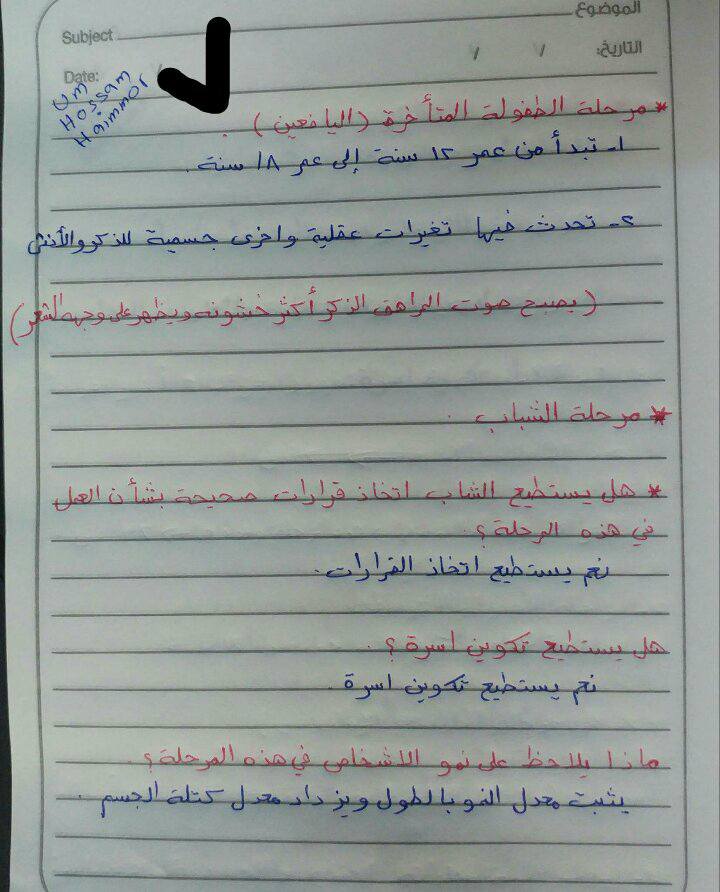 الموضوع
Subject
التاريخ: / /
Date:
Um
Hossam
Haimmor
* مرحلة الطفولة المتأخرة (اليافعين) .
١- تبدأ من عمر ١٢ سنة إلى عمر ١٨ سنة .
٢- تحدث فيها تغيرات عقلية واخرى جسمية للذكر والأنثى
(يصبح صوت المراهق الذكر أكثر خشونه ويظهر على وجهه الشعر)
* مرحلة الشباب .
* هل يستطيع الشاب اتخاذ قرارات صحيحة بشأن العمل
في هذه المرحلة ؟
نعم يستطيع اتخاذ القرارات .
هل يستطيع تكوين اسرة ؟ .
نعم يستطيع تكوين اسرة .
ماذا يلاحظ على نمو الاشخاص في هذه المرحلة ؟ .
يثبت معدل النمو بالطول ويزداد معدل كتلة الجسم .